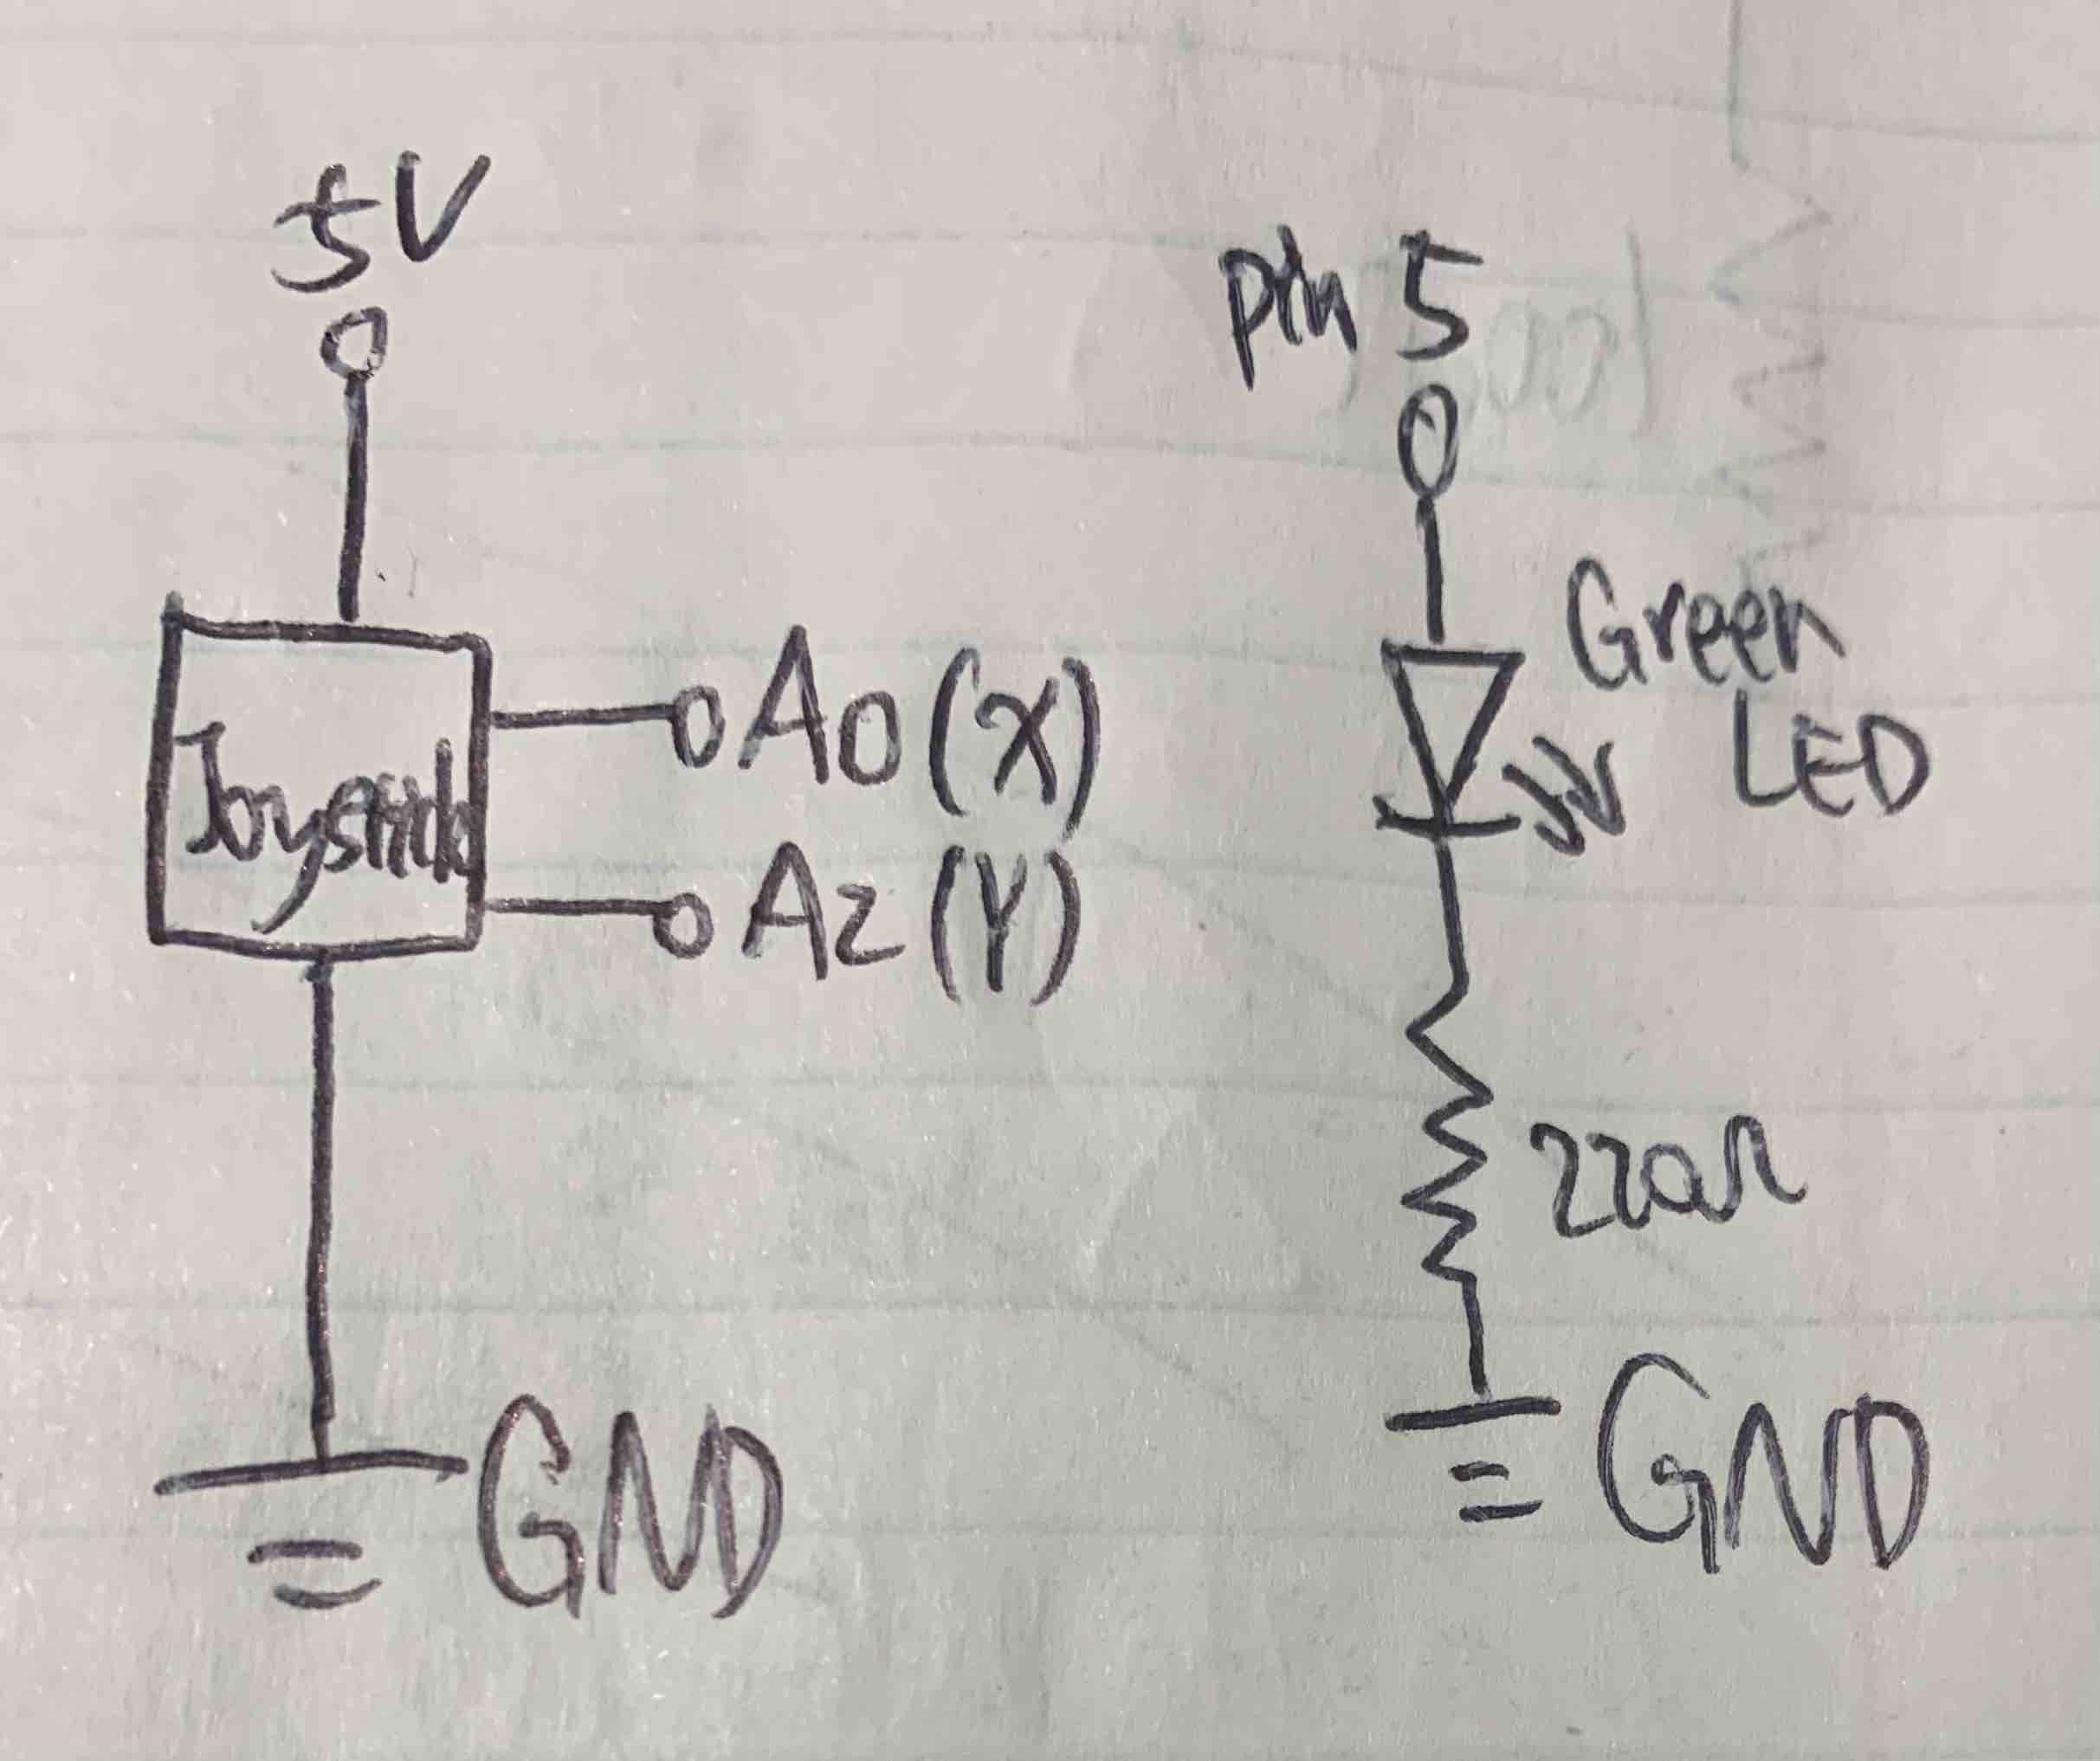 5V
Joystick
A0 (X)
A2 (Y)
GND
pin 5
Green
LED
220Ω
GND